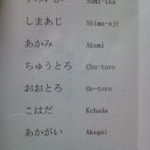 すみいか Sumi-ika
しまあじ Shima-aji
あかみ Akami
ちゅうとろ Chu-toro
おおとろ Oo-toro
こはだ Kohada
あかがい Akagai